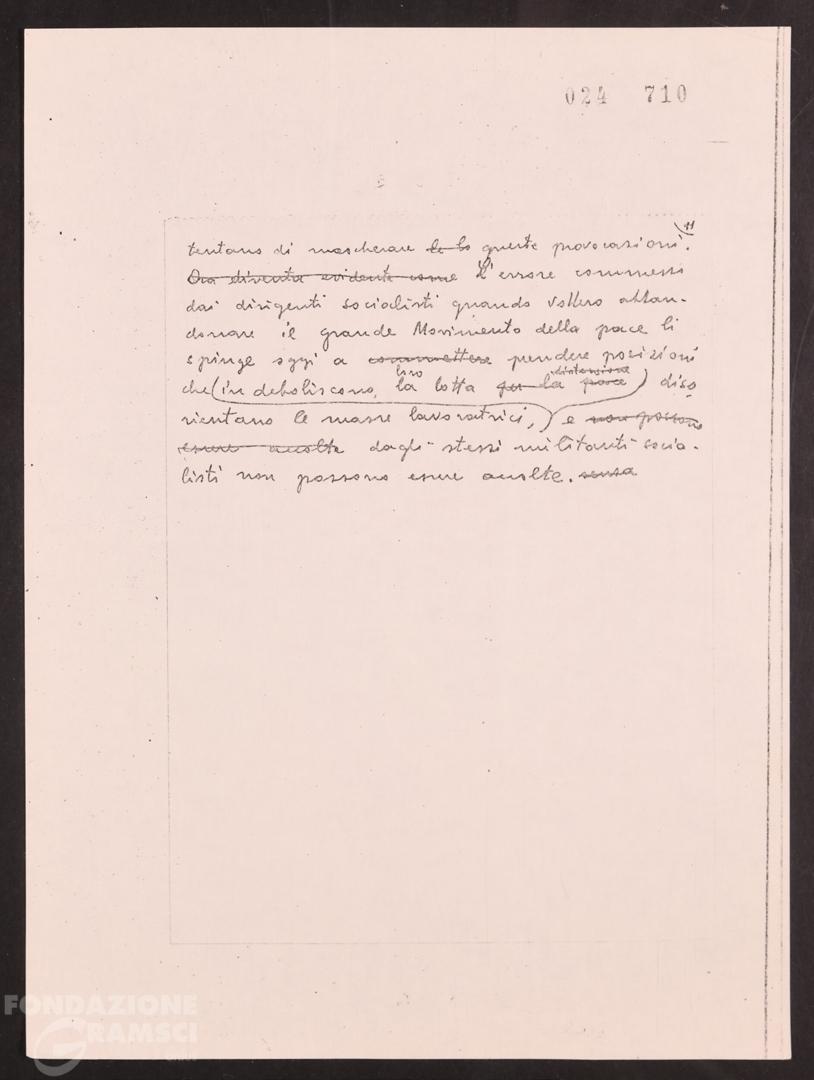 024 710
11
tentano di mascherare le lo queste provocazioni.
Ora diventa evidente come L'errore commesso
dai dirigenti socialisti quando vollero abban-
donare il grande Movimento della pace li
spinge oggi a commettere prendere posizioni
loro distensione
che (indeboliscono, la lotta per la pace) diso
rientano le masse lavoratrici, e non possono
essere accolte dagli stessi militanti socia-
listi non possono essere accolte. senza
FONDAZIONE
GRAMSCI